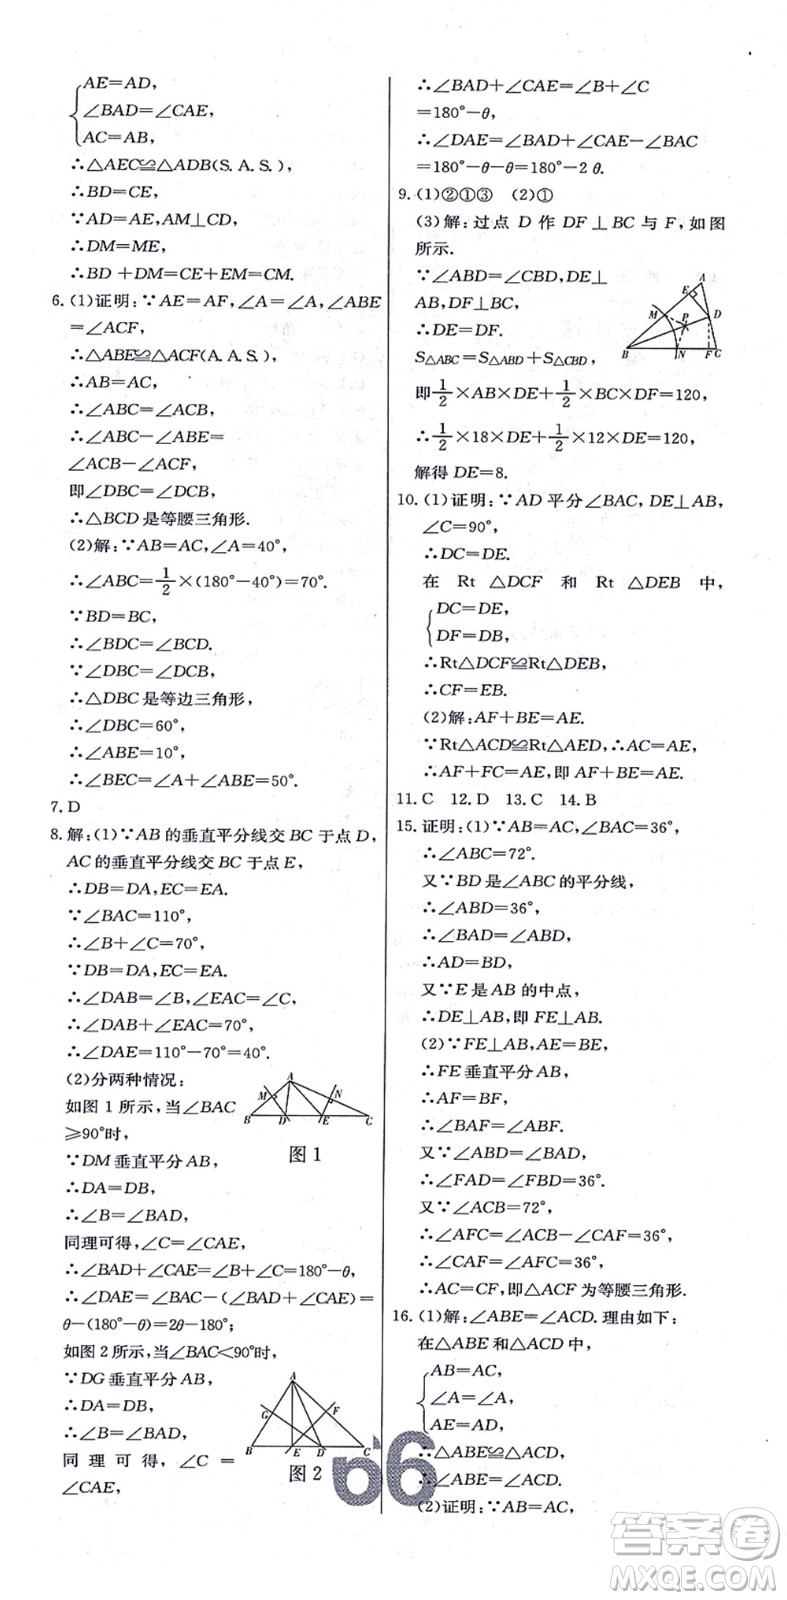 AE=AD,
∠BAD=∠CAE,
AC=AB,
∴△AEC≌△ADB(S.A.S.),
∴BD=CE,
∵AD=AE,AM⊥CD,
∴DM=ME,
∴BD+DM=CE+EM=CM.
6.(1)证明:∵AE=AF,∠A=∠A,∠ABE
=∠ACF,
∴△ABE≌△ACF(A.A.S.),
∴AB=AC,
∴∠ABC=∠ACB,
∴∠ABC-∠ABE=
∠ACB-∠ACF,
即∠DBC=∠DCB,
∴△BCD是等腰三角形.
(2)解:∵AB=AC,∠A=40°,
∴∠ABC=1/2×(180°-40°)=70°.
∵BD=BC,
∴∠BDC=∠BCD.
∵∠DBC=∠DCB,
∴△DBC是等边三角形,
∴∠DBC=60°,
∴∠ABE=10°,
∴∠BEC=∠A+∠ABE=50°.
7.D
8.解:(1)∵AB的垂直平分线交BC于点D,
AC的垂直平分线交BC于点E,
∴DB=DA,EC=EA.
∵∠BAC=110°,
∴∠B+∠C=70°,
∵DB=DA,EC=EA.
∴∠DAB=∠B,∠EAC=∠C,
∴∠DAB+∠EAC=70°,
∴∠DAE=110°-70°=40°.
(2)分两种情况:
如图1所示,当∠BAC
≥90°时,
∵DM垂直平分AB,
∴DA=DB,
∴∠B=∠BAD,
同理可得,∠C=∠CAE,
∴∠BAD+∠CAE=∠B+∠C=180°-θ,
∴∠DAE=∠BAC-(∠BAD+∠CAE)=
θ-(180°-θ)=2θ-180°;
如图2所示,当∠BAC<90°时,
∵DG垂直平分AB,
∴DA=DB,
∴∠B=∠BAD,
同理可得,∠C=
∠CAE,
A
M
N
B
D
E
C
图1
A
G
F
B
E
D
C
图2
∴∠BAD+∠CAE=∠B+∠C
=180°-θ,
∴∠DAE=∠BAD+∠CAE-∠BAC
=180°-θ-θ=180°-2θ.
9.(1)②①③ (2)①
(3)解:过点D作DF⊥BC与F,如图
所示.
∵∠ABD=∠CBD,DE⊥
AB,DF⊥BC,
∴DE=DF.
S△ABC=S△ABD+S△CBD,
即1/2×AB×DE+1/2×BC×DF=120,
∴1/2×18×DE+1/2×12×DE=120,
解得DE=8.
A
E
M
P
D
B
N
F
C
10.(1)证明:∵AD平分∠BAC,DE⊥AB,
∠C=90°,
∴DC=DE.
在Rt△DCF和Rt△DEB中,
DC=DE,
DF=DB,
∴Rt△DCF≌Rt△DEB,
∴CF=EB.
(2)解:AF+BE=AE.
∵Rt△ACD≌Rt△AED,∴AC=AE,
∴AF+FC=AE,即AF+BE=AE.
11.C 12.D 13.C 14.B
15.证明:(1)∵AB=AC,∠BAC=36°,
∴∠ABC=72°.
又∵BD是∠ABC的平分线,
∴∠ABD=36°,
∴∠BAD=∠ABD,
∴AD=BD,
又∵E是AB的中点,
∴DE⊥AB,即FE⊥AB.
(2)∵FE⊥AB,AE=BE,
∴FE垂直平分AB,
∴AF=BF,
∴∠BAF=∠ABF.
又∵∠ABD=∠BAD,
∴∠FAD=∠FBD=36°.
又∵∠ACB=72°,
∴∠AFC=∠ACB-∠CAF=36°,
∴∠CAF=∠AFC=36°,
∴AC=CF,即△ACF为等腰三角形.
16.(1)解:∠ABE=∠ACD.理由如下:
在△ABE和△ACD中,
AB=AC,
∠A=∠A,
AE=AD,
∴△ABE≌△ACD,
∴∠ABE=∠ACD.
(2)证明:∵AB=AC,
66
答案卷
MXQE.COM